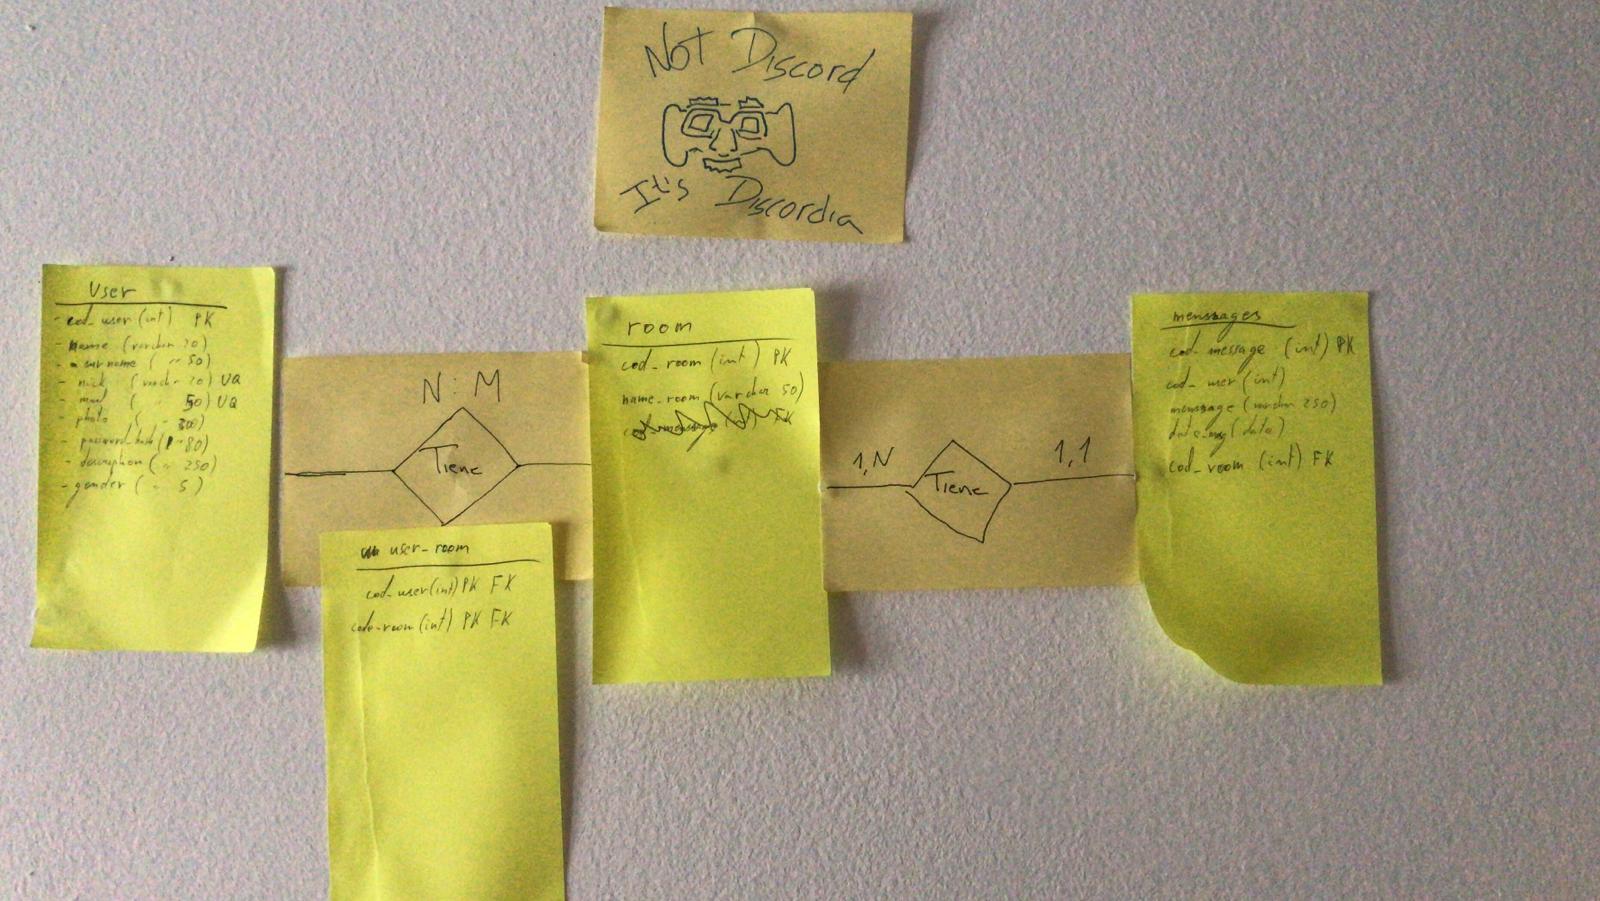 Not Discord
It's Discordia
User
- cod_user (int) PK
- name (varchar 20)
- surname ( ~ 50)
- nick (varch~ 20) UQ
- mail ( ~ 50) UQ
- photo ( ~ 300)
- password_hash ( ~ 80)
- description ( ~ 250)
- gender ( ~ 5)
N : M
Tiene
user-room
cod_user (int) PK FK
code-room (int) PK FK
room
cod_room (int) PK
name_room (varchar 50)
1,N
Tiene
1,1
menssages
cod_message (int) PK
cod_user (int)
menssage (varchar 250)
date_msg (date)
cod_room (int) FK